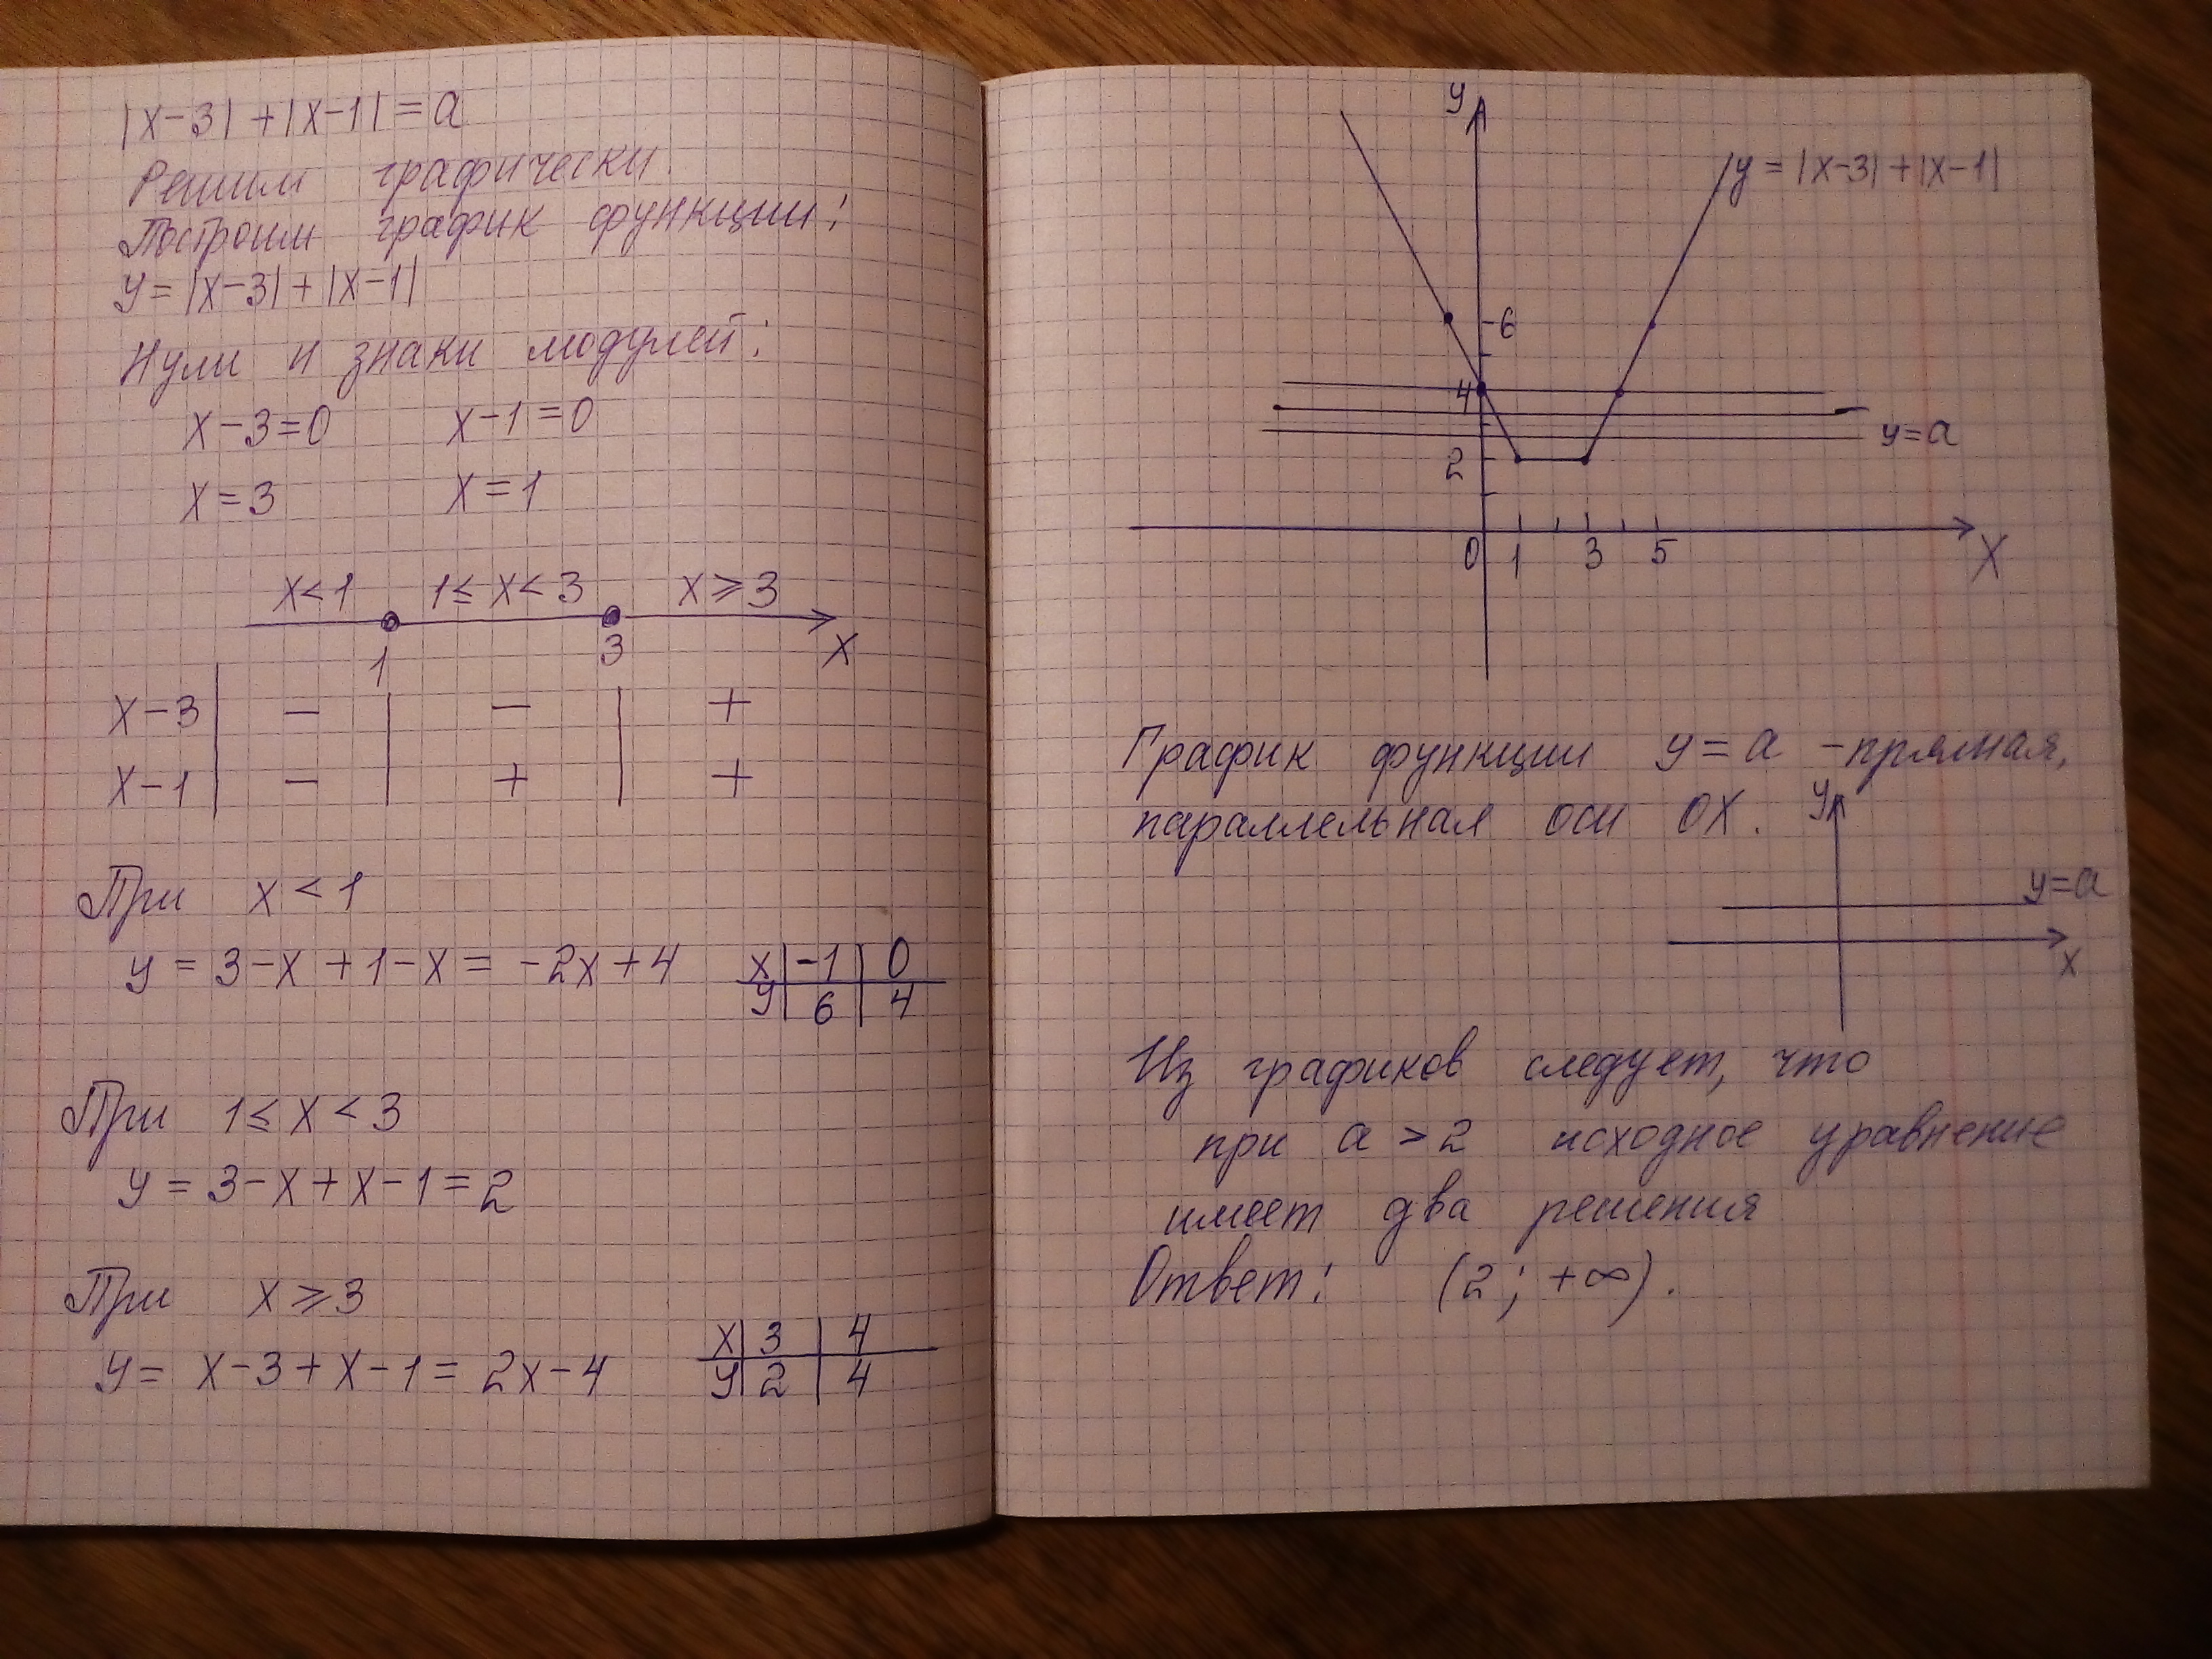 |x-3|+|x-1|=a
Решим графически.
Построим график функции:
y=|x-3|+|x-1|
Нули и знаки модулей:
x-3=0 x-1=0
x=3 x=1
x<1 1≤x<3 x≥3
1 3 x
x-3 - - +
x-1 - + +
При x<1
y=3-x+1-x=-2x+4
x -1 0
y 6 4
При 1≤x<3
y=3-x+x-1=2
При x≥3
y=x-3+x-1=2x-4
x 3 4
y 2 4
y
y=|x-3|+|x-1|
6
4
y=a
2
0 1 3 5 x
График функции y=a - прямая,
параллельная оси OX.
y
y=a
x
Из графиков следует, что
при a>2 исходное уравнение
имеет два решения
Ответ: (2; +∞).